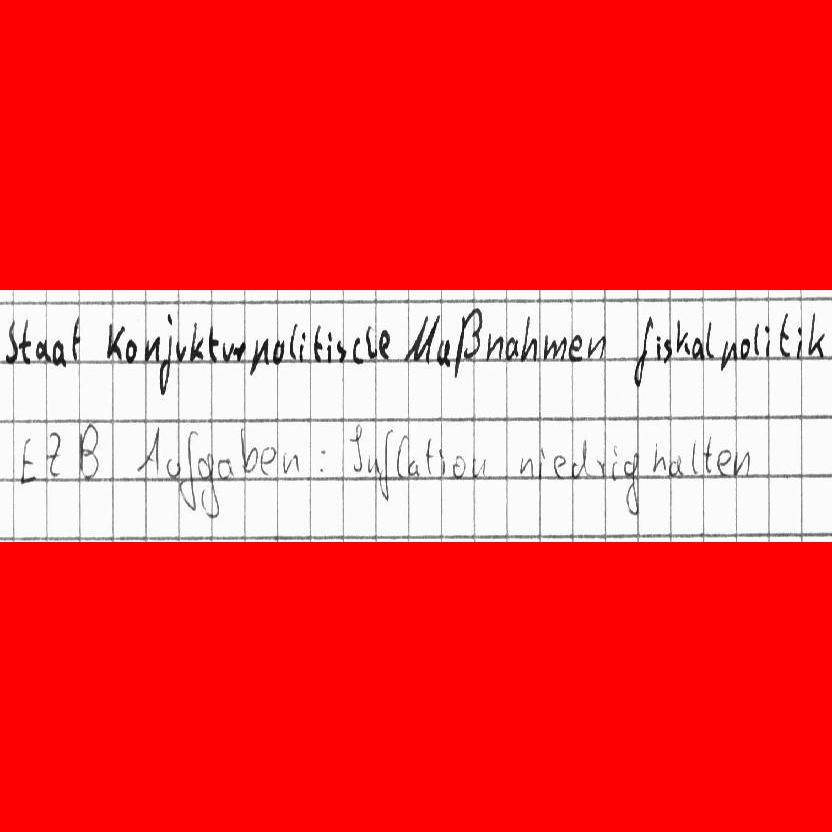 Staat Konjukturpolitische Maßnahmen fiskalpolitik
EZB Aufgaben: Inflation niedrig halten